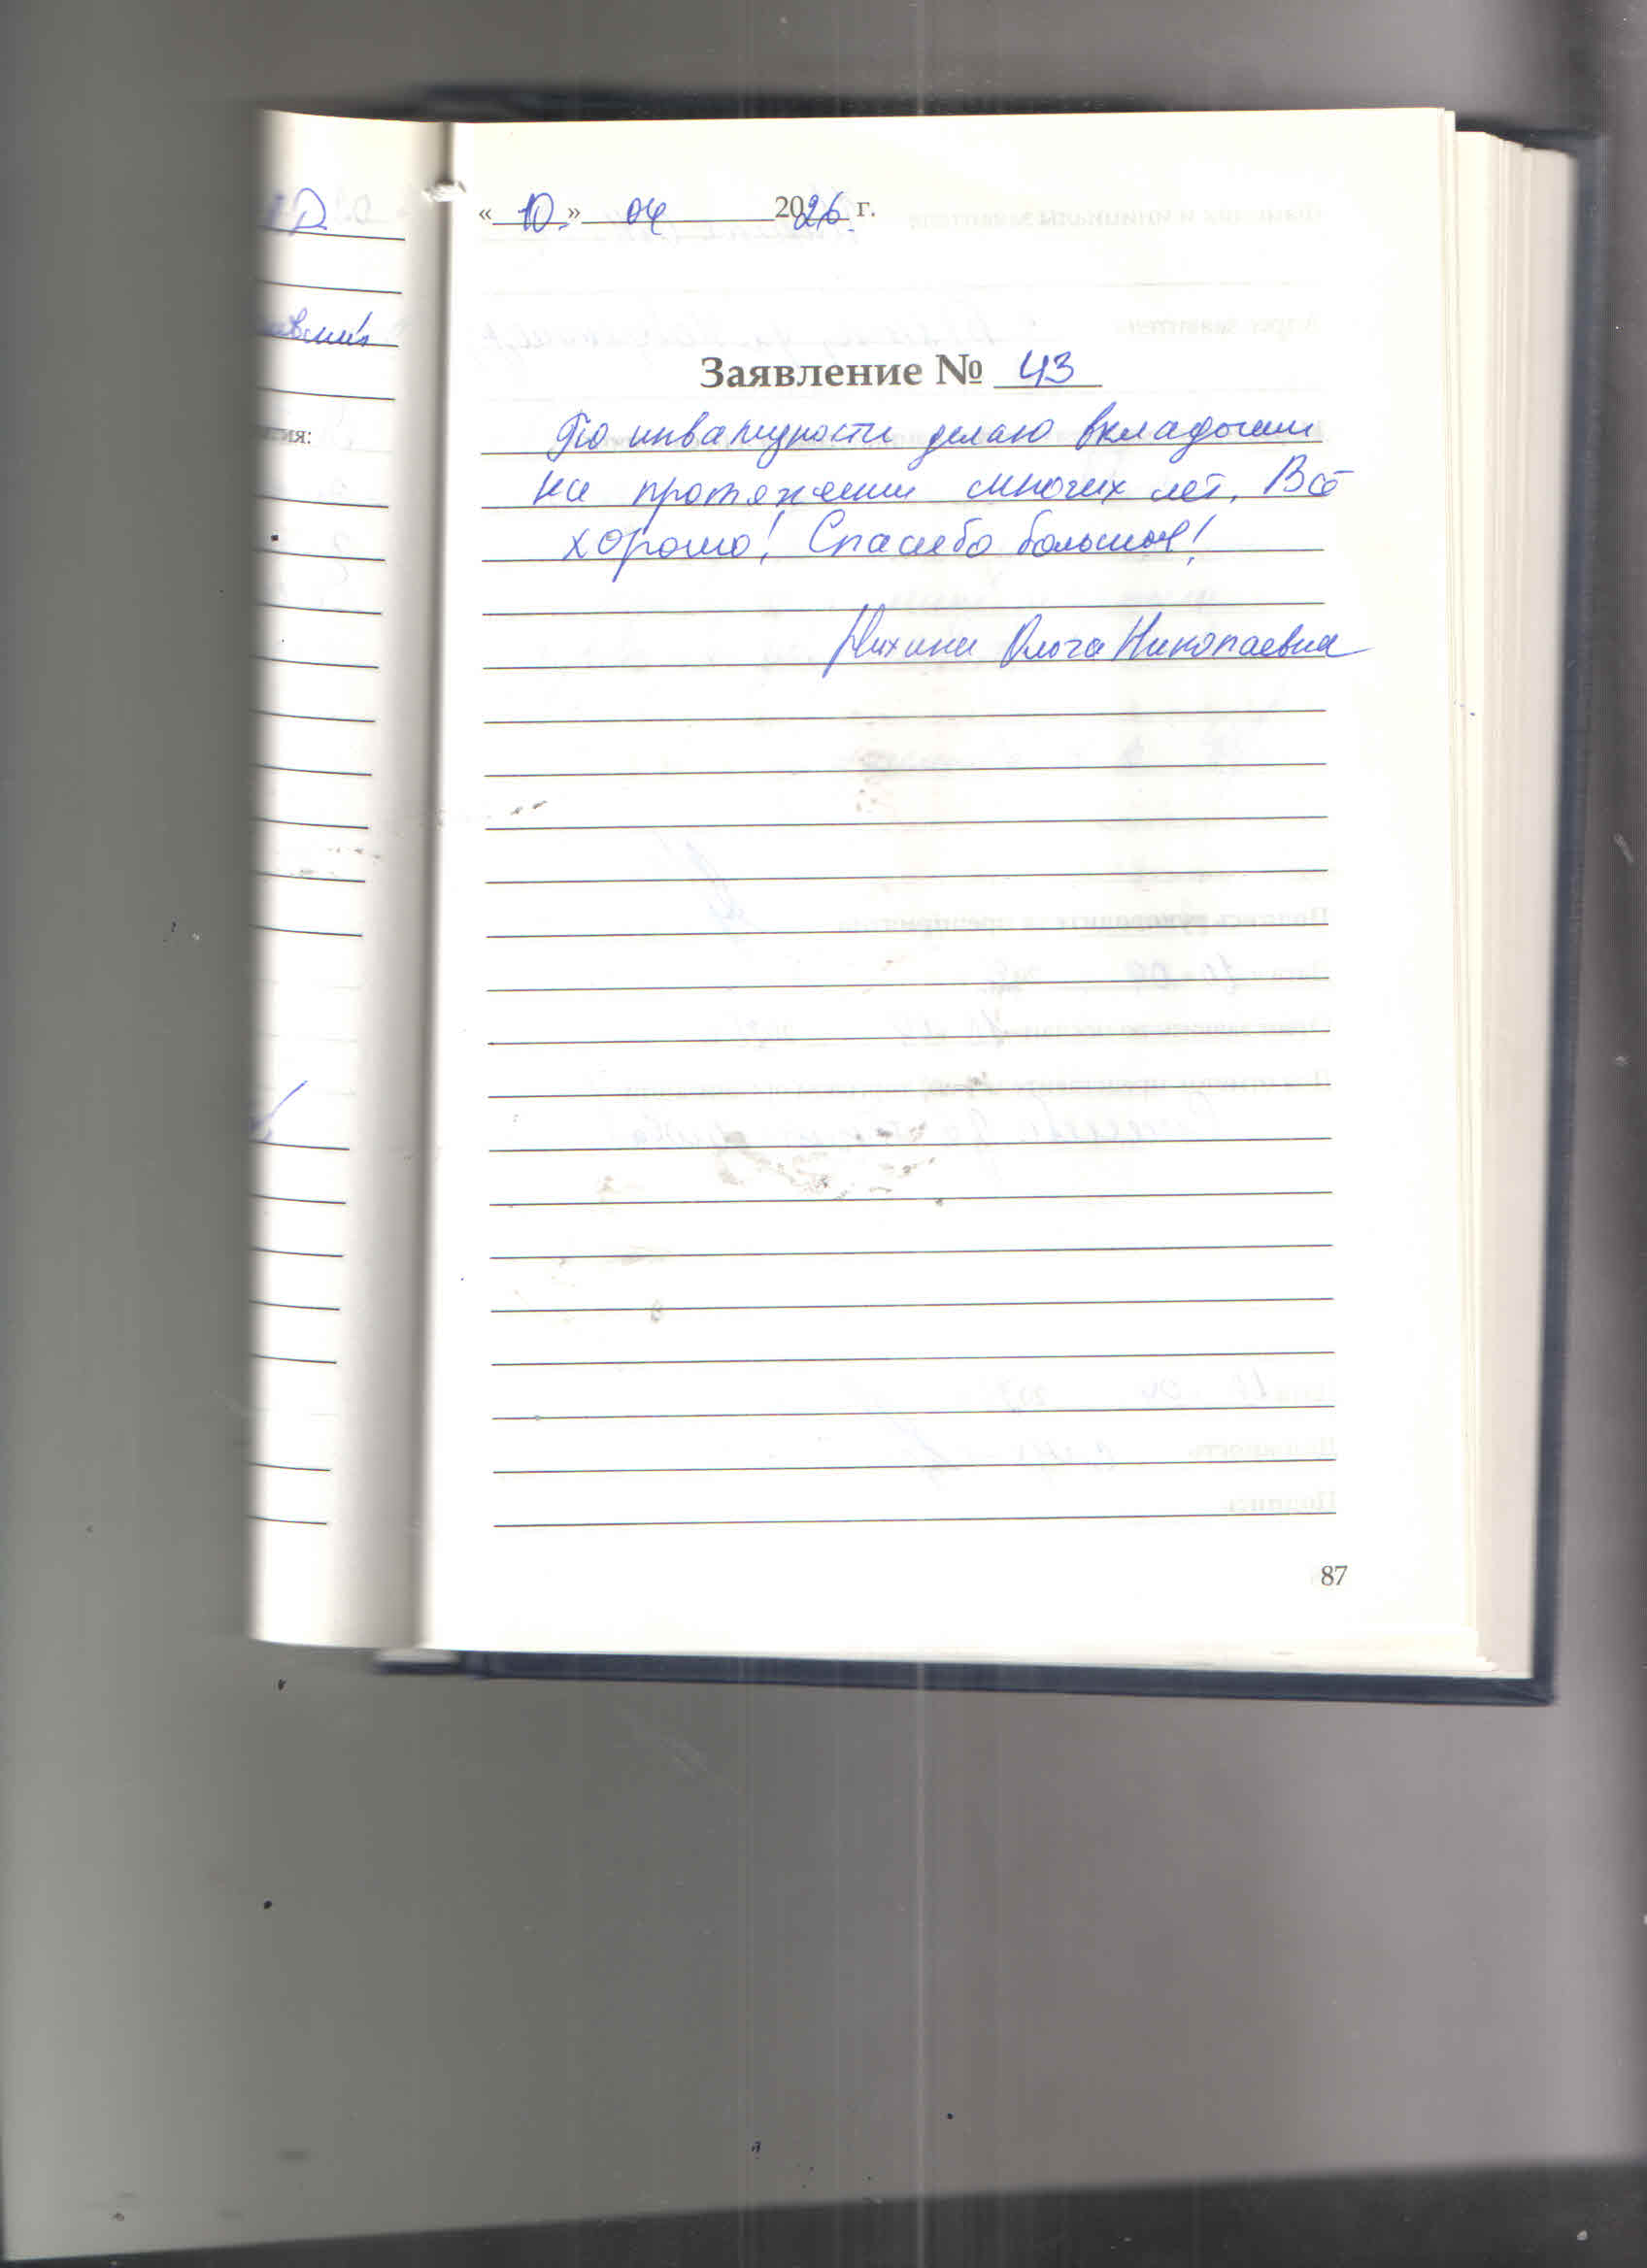 «10.» 04 2026 г.
Заявление № 43
По инвалидности делаю вкладыши
на протяжении многих лет. Всё
хорошо! Спасибо большое!
Ольга Николаевна
тия:
87